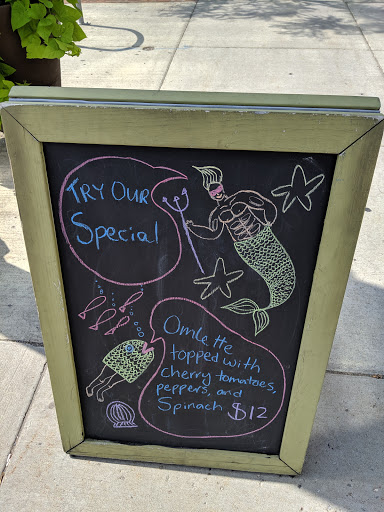 TRY OUR
Special
Omlette
topped with
cherry tomatoes,
peppers, and
Spinach $12